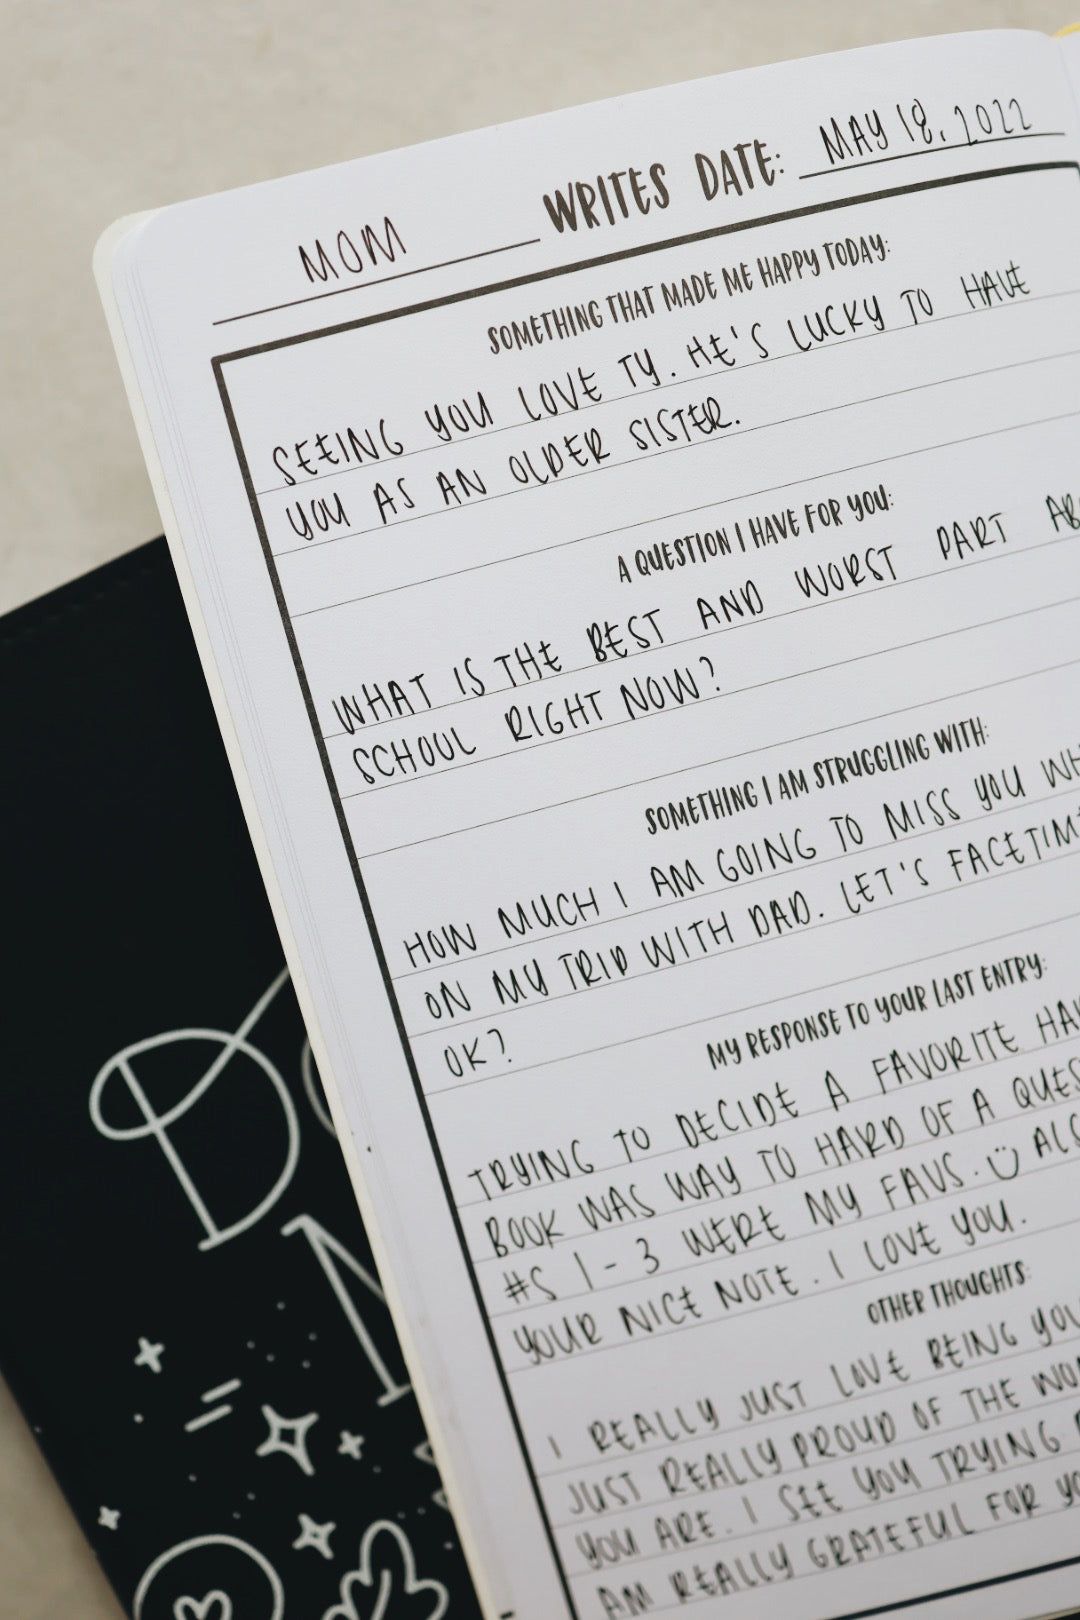 MOM WRITES DATE: MAY 18, 2022
SOMETHING THAT MADE ME HAPPY TODAY:
SEEING YOU LOVE TY. HE'S LUCKY TO HAVE
YOU AS AN OLDER SISTER.
A QUESTION I HAVE FOR YOU:
WHAT IS THE BEST AND WORST PART
SCHOOL RIGHT NOW?
SOMETHING I AM STRUGGLING WITH:
HOW MUCH I AM GOING TO MISS YOU
ON MY TRIP WITH DAD. LET'S FACETIM
OK?
MY RESPONSE TO YOUR LAST ENTRY:
TRYING TO DECIDE A FAVORITE
BOOK WAS WAY TO HARD OF A QUES
#S 1-3 WERE MY FAVS. Ü
YOUR NICE NOTE. I LOVE YOU.
OTHER THOUGHTS:
I REALLY JUST LOVE BEING
JUST REALLY PROUD OF THE
YOU ARE. I SEE YOU TRYING
AM REALLY GRATEFUL FOR